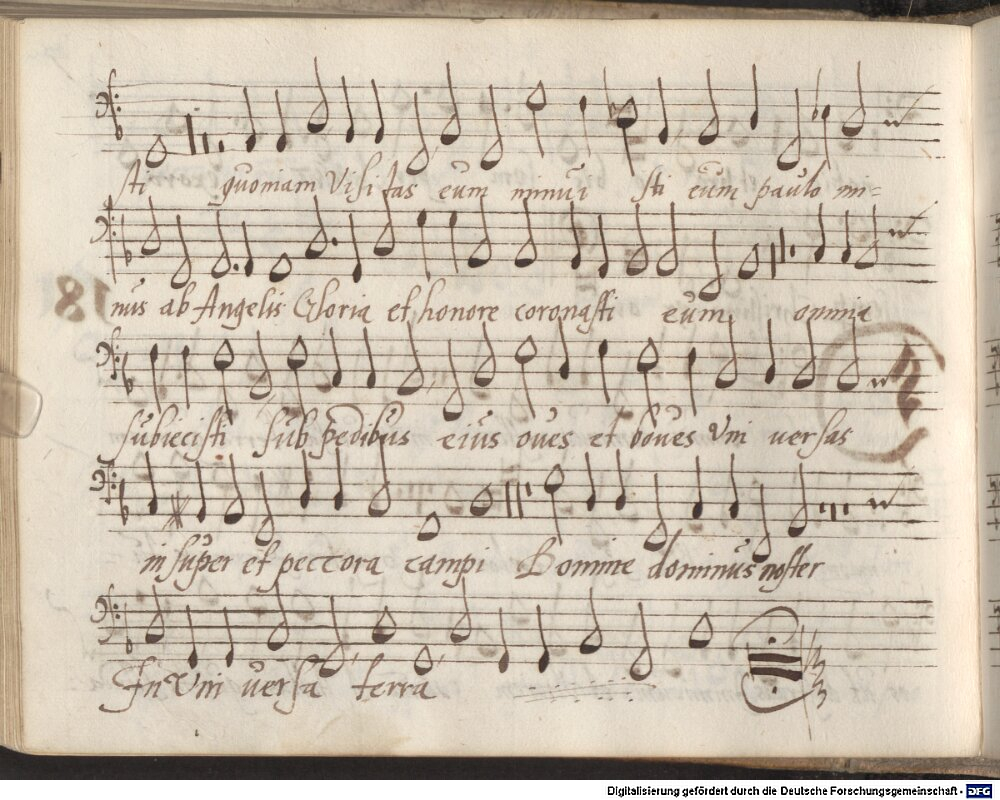 sti quoniam visi tas eum minui sti eum paulo mi=
nus ab Angelis Gloria et honore coronasti eum omnia
subiecisti sub pedibus eius oves et boves Uni versas
in super et pectora campi Domine dominus noster
In Uni versa terra
Digitalisierung gefördert durch die Deutsche Forschungsgemeinschaft - DFG